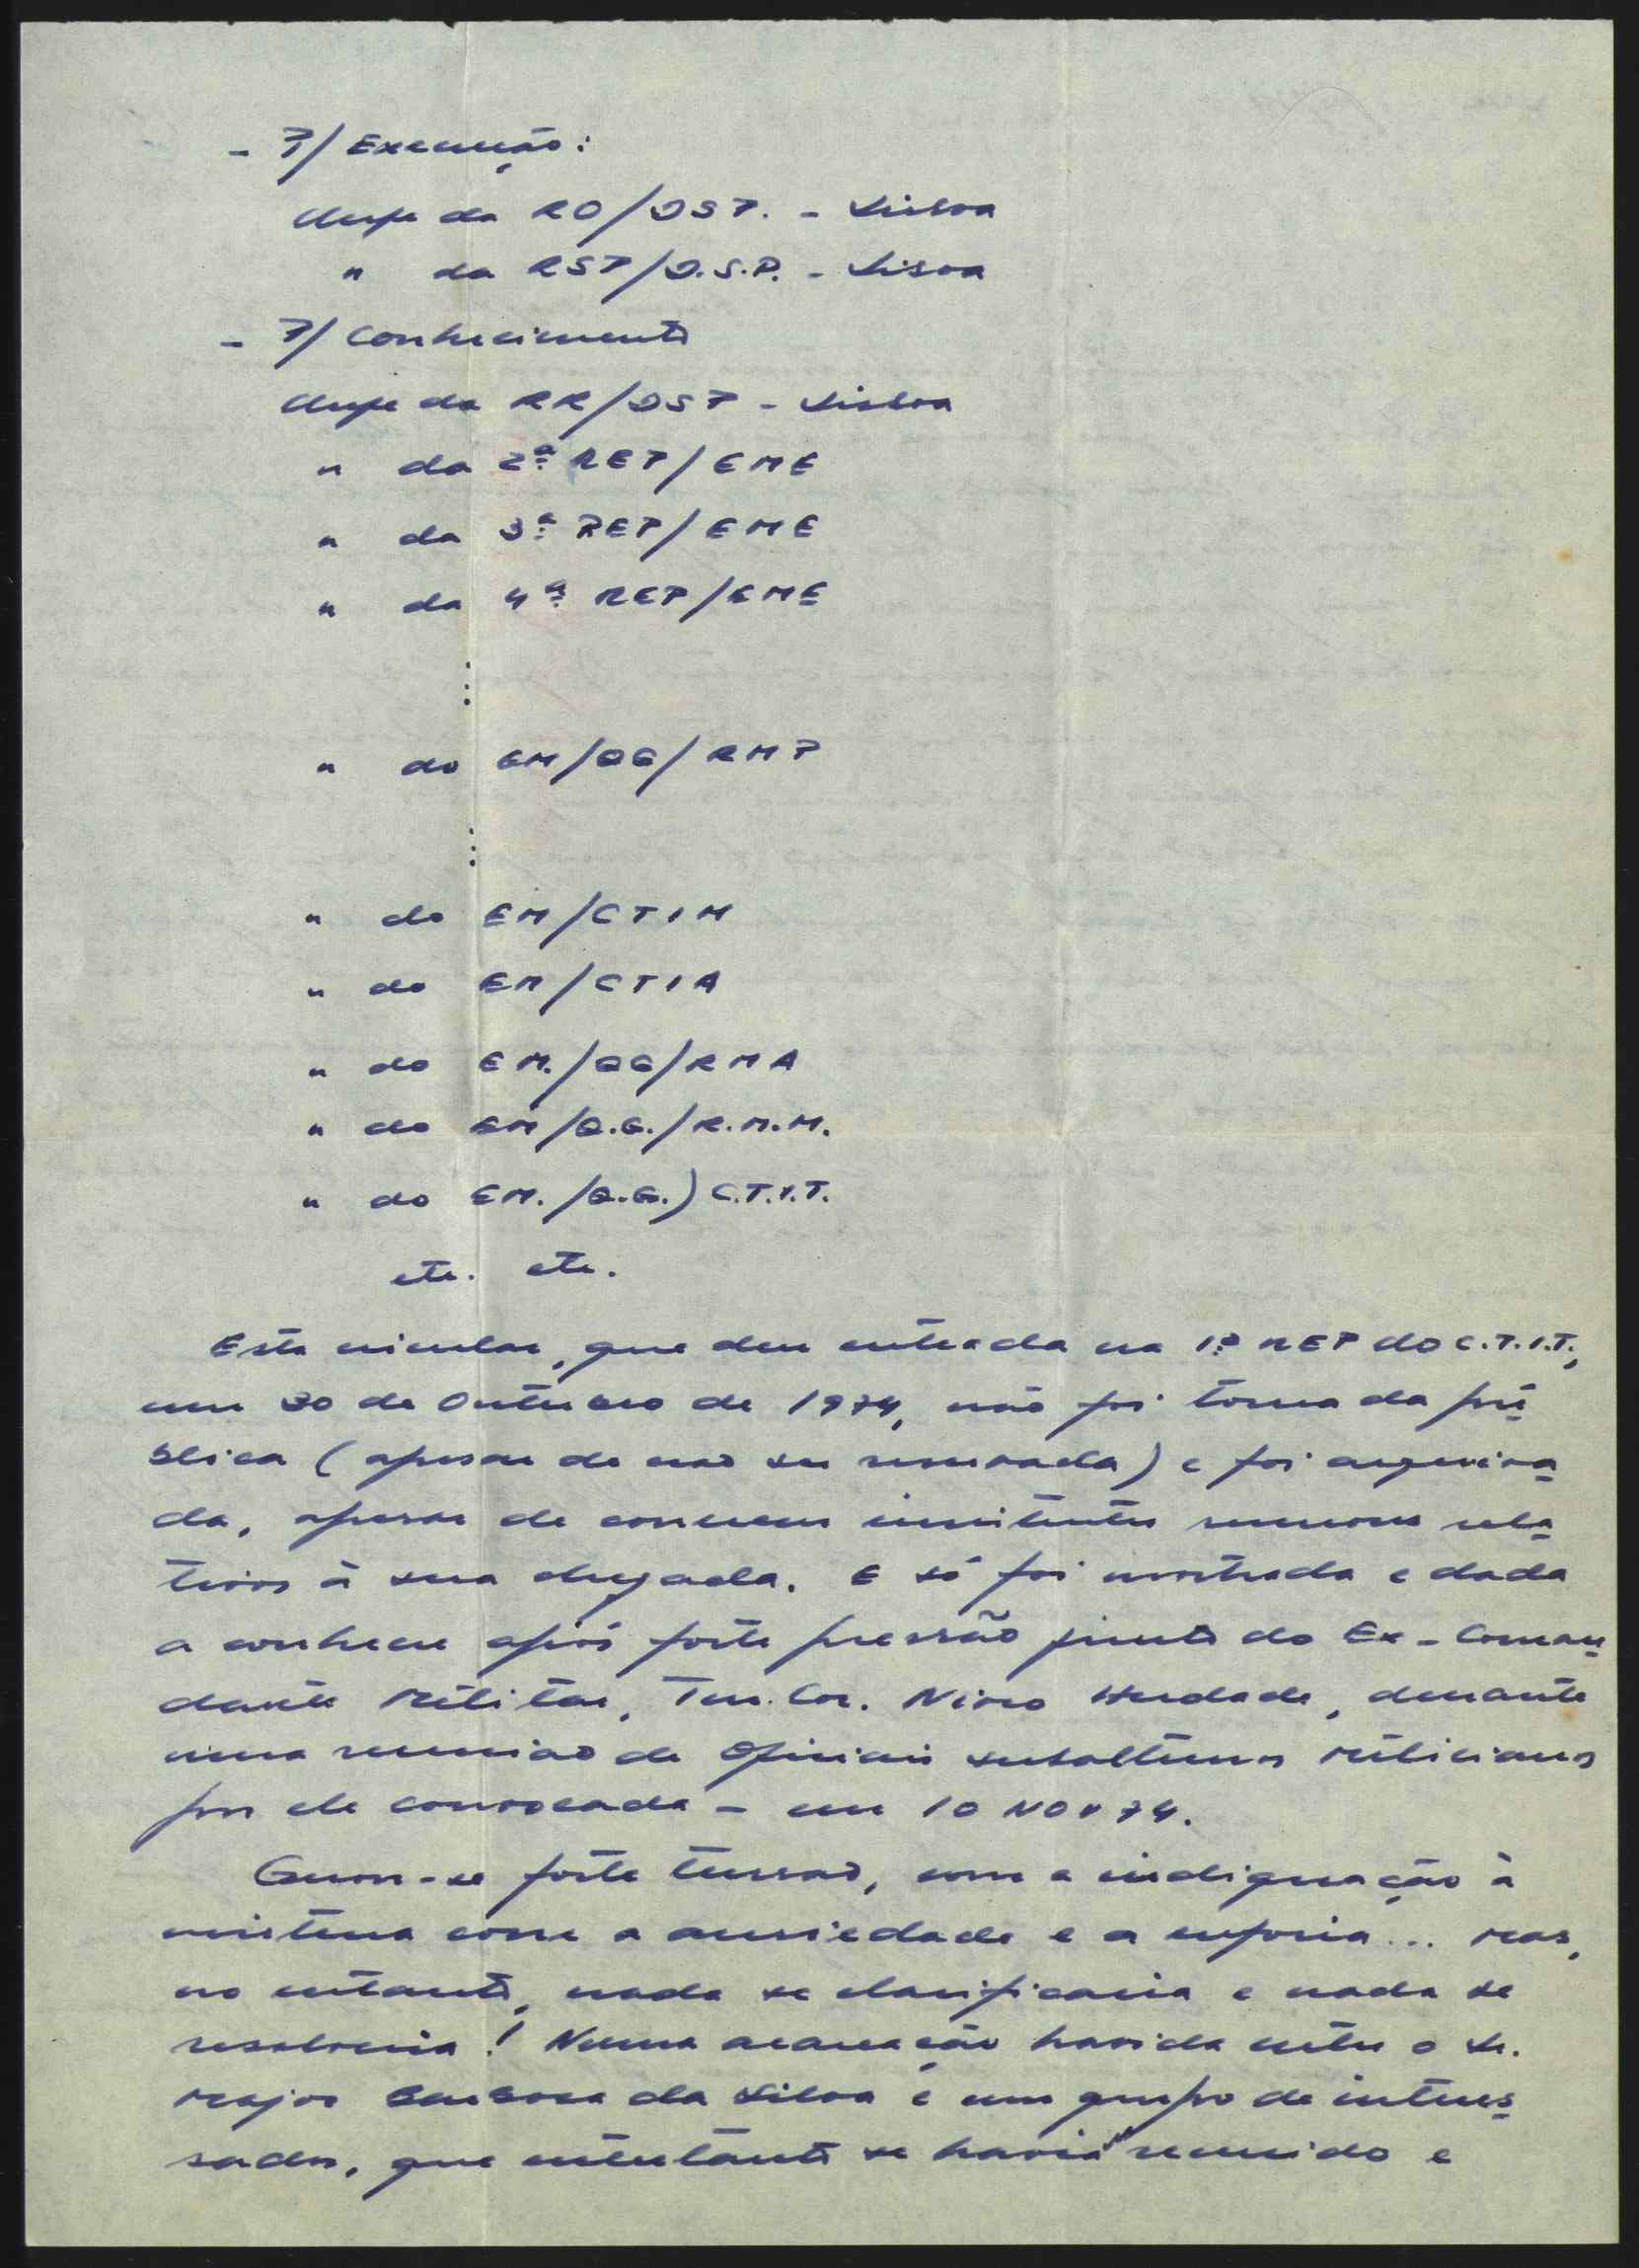 - P/ Execução:
Chefe da RO/DSP. - Lisboa
" da RSP/D.S.P. - Lisboa
- P/ Conhecimento
Chefe da RR/DSP - Lisboa
" da 2ª REP/EME
" da 3ª REP/EME
" da 4ª REP/EME
⋮
" do EM/QG/RMP
⋮
" do EM/CTIM
" do EM/CTIA
" do EM./QG/RMA
" do EM/Q.G./R.M.M.
" do EM./Q.G.) C.T.I.T.
etc. etc.
Esta circular, que deu entrada na 1ª REP do C.T.I.T.,
em 30 de Outubro de 1974, não foi tornada pú-
blica (apesar de não ser reservada) e foi arquiva-
da, apesar de correrem insistentes rumores rela-
tivos à sua chegada. E só foi mostrada e dada
a conhecer após forte pressão junto do Ex-Coman-
dante Militar, Ten. Cor. Níveo Herdade, durante
uma reunião de Oficiais subalternos Milicianos
por ele convocada - em 10 NOV 74.
Gerou-se forte tensão, com a indignação à
mistura com a ansiedade e a euforia... Mas,
no entanto, nada se clarificaria e nada se
resolveria! Numa acareação havida entre o Sr.
Major Barbosa da Silva e um grupo de interes-
sados, que entretanto se havia reunido e